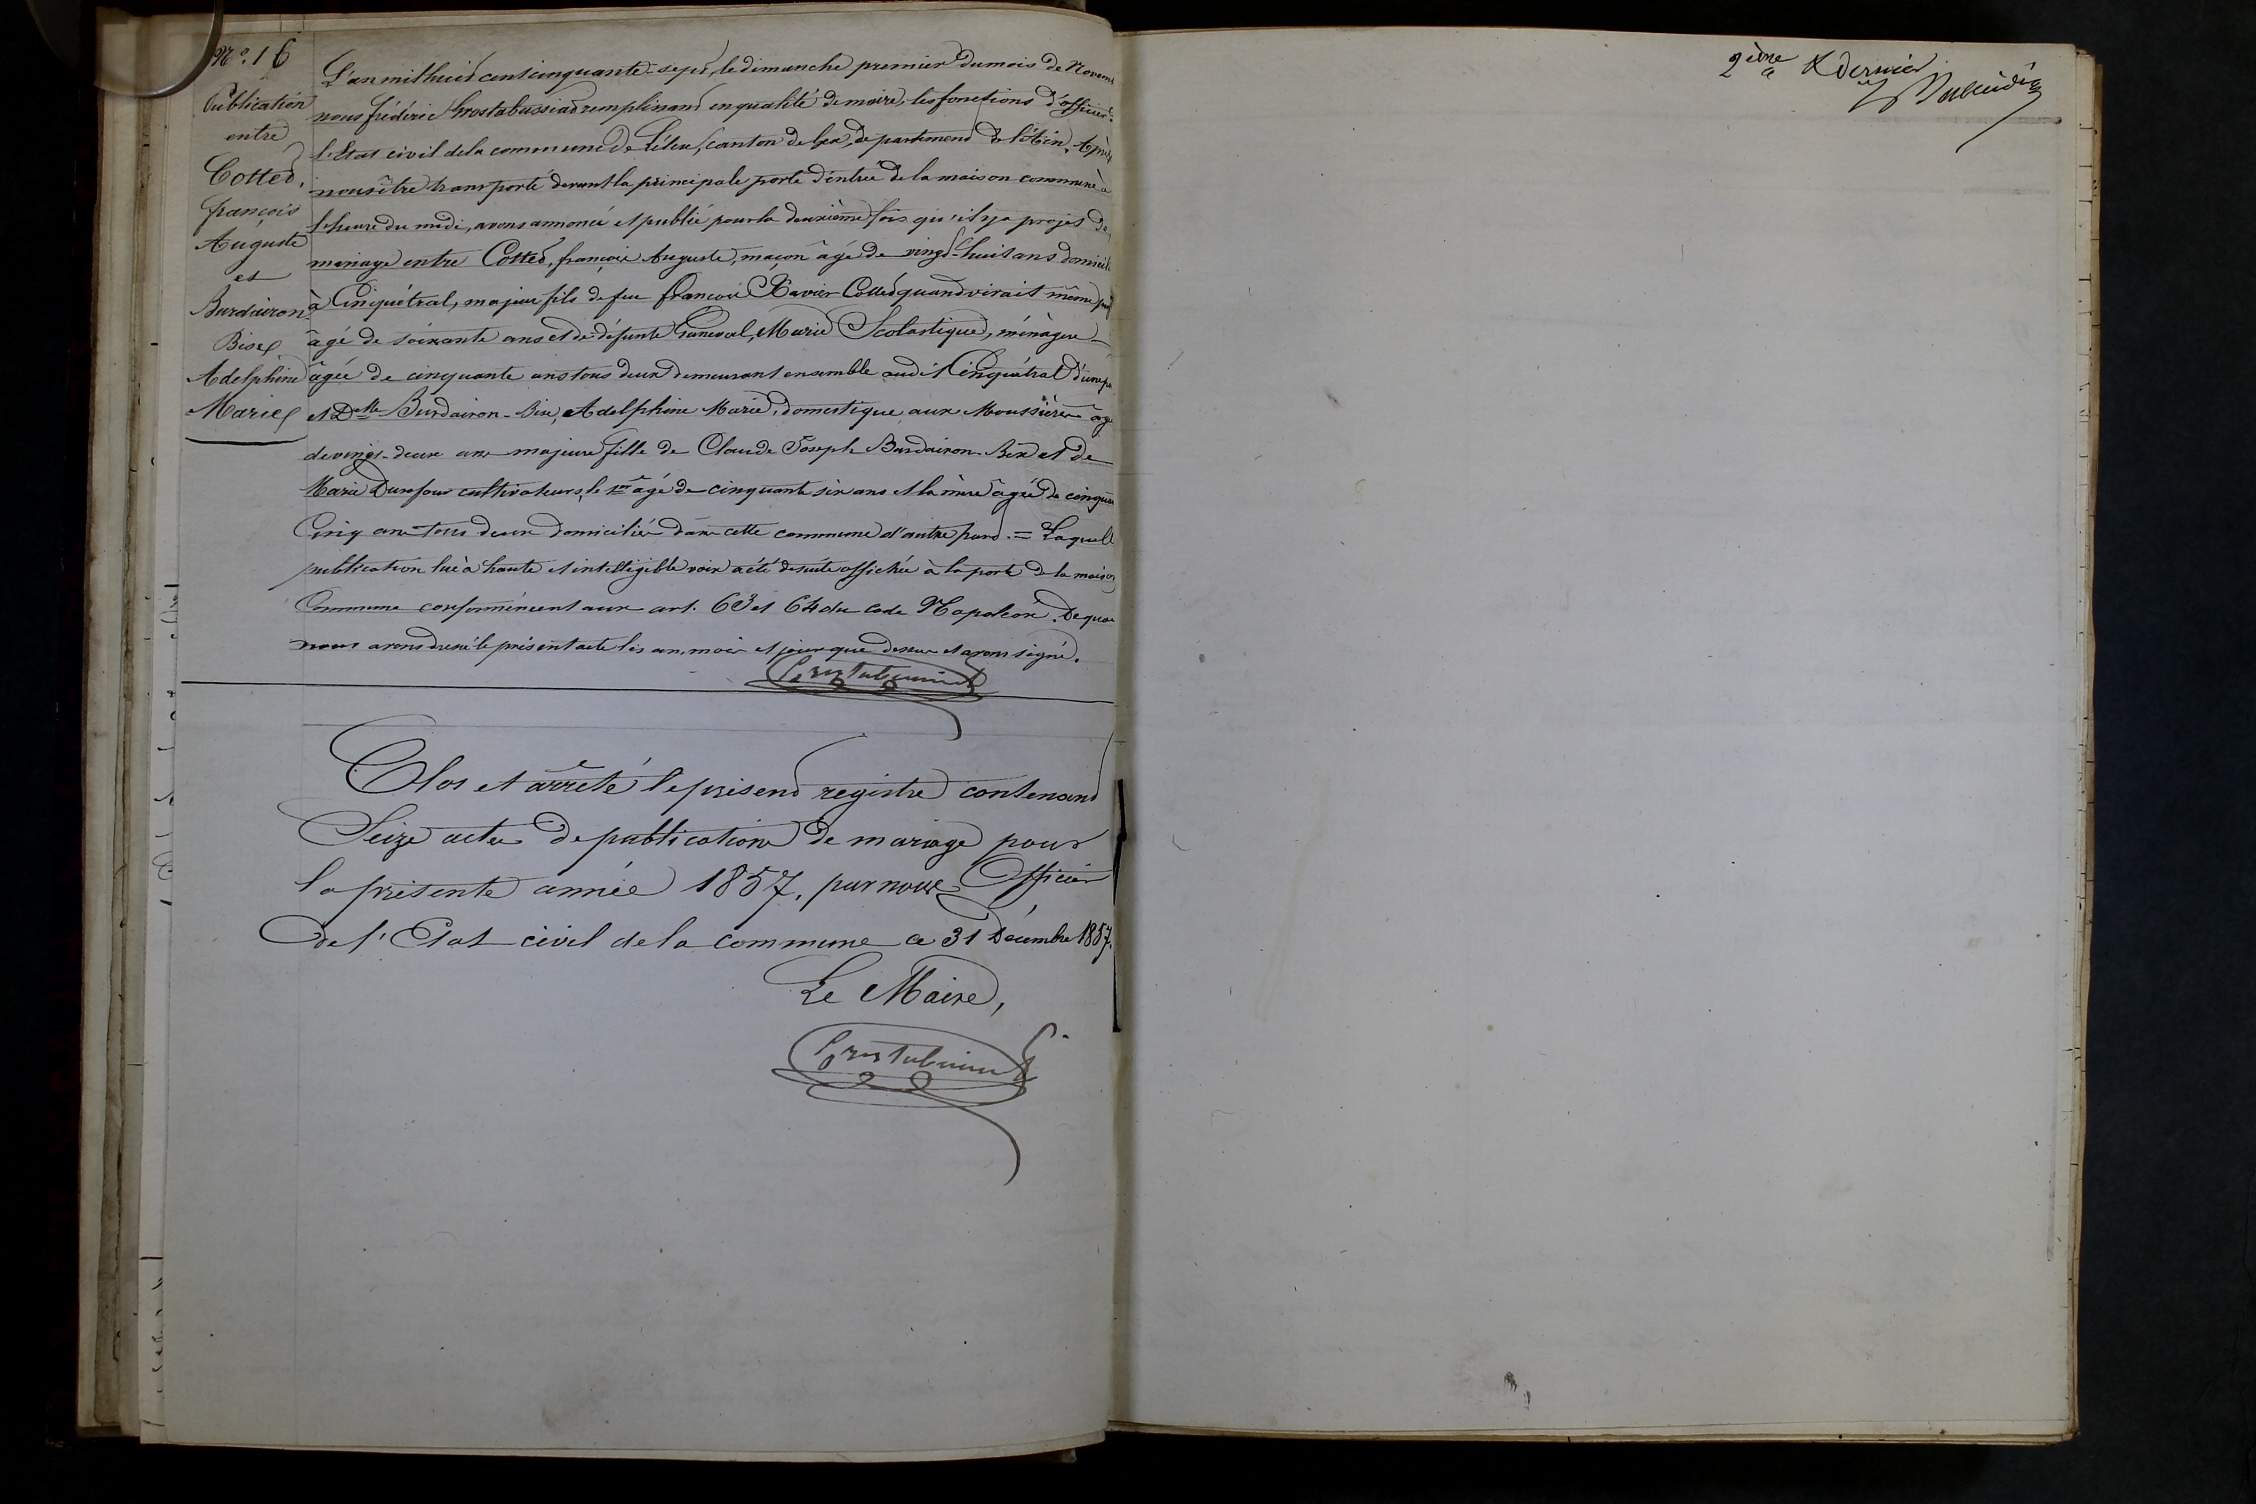 N° 16
Publication
entre
Cottet,
françois
Auguste
et
Burdairon
Bise
Adelphine
Marie
L'an mil huit cent cinquante-sept, le dimanche premier du mois de Novem
nous frédéric Grostabussiat remplissant en qualité de maire, les fonctions d'officier de
l'Etat civil de la commune de Lélex, canton de Gex, département de l'Ain, Après
nous être transporté devant la principale porte d'entrée de la maison commune à
l'heure du midi, avons annoncé et publié pour la deuxième fois qu'il y a projet de
mariage entre Cottet, françois Auguste, maçon âgé de vingt-huit ans domicilé
à Cinquétral, majeur fils de feu françois Xavier Cottet quand virait même
âgé de soixante ans et de défunte Ganeval, Marie Scolastique, ménagère
âgée de cinquante ans tous deux demeurant ensemble audit Cinquétral d'une p
et Delle Burdairon-Bise, Adelphine Marie, domestique aux Moussières âgé
de vingt-deux ans majeure fille de Claude Joseph Burdairon-Bise et de
Marie Durafour cultivateurs, le 1er âgé de cinquante six ans et la mère âgée de cinqua
Cinq ans tous deux domiciliés dans cette commune d'autre part. = Laquelle
publication lue à haute et intelligible voix a été de suite affichée à la porte de la maison
Commune conformément aux art. 63 et 64 du code Napoléon. De quoi
nous avons dressé le présent acte les an, mois et jour que dessus et avons signé.
Grostabussiat
Clos et arrêté le présent registre contenant
Seize actes de publication de mariage pour
la présente année 1857, par nous Officier
de l'Etat civil de la commune ce 31 Décembre 1857.
Le Maire,
Grostabussiat
2ème & dernier